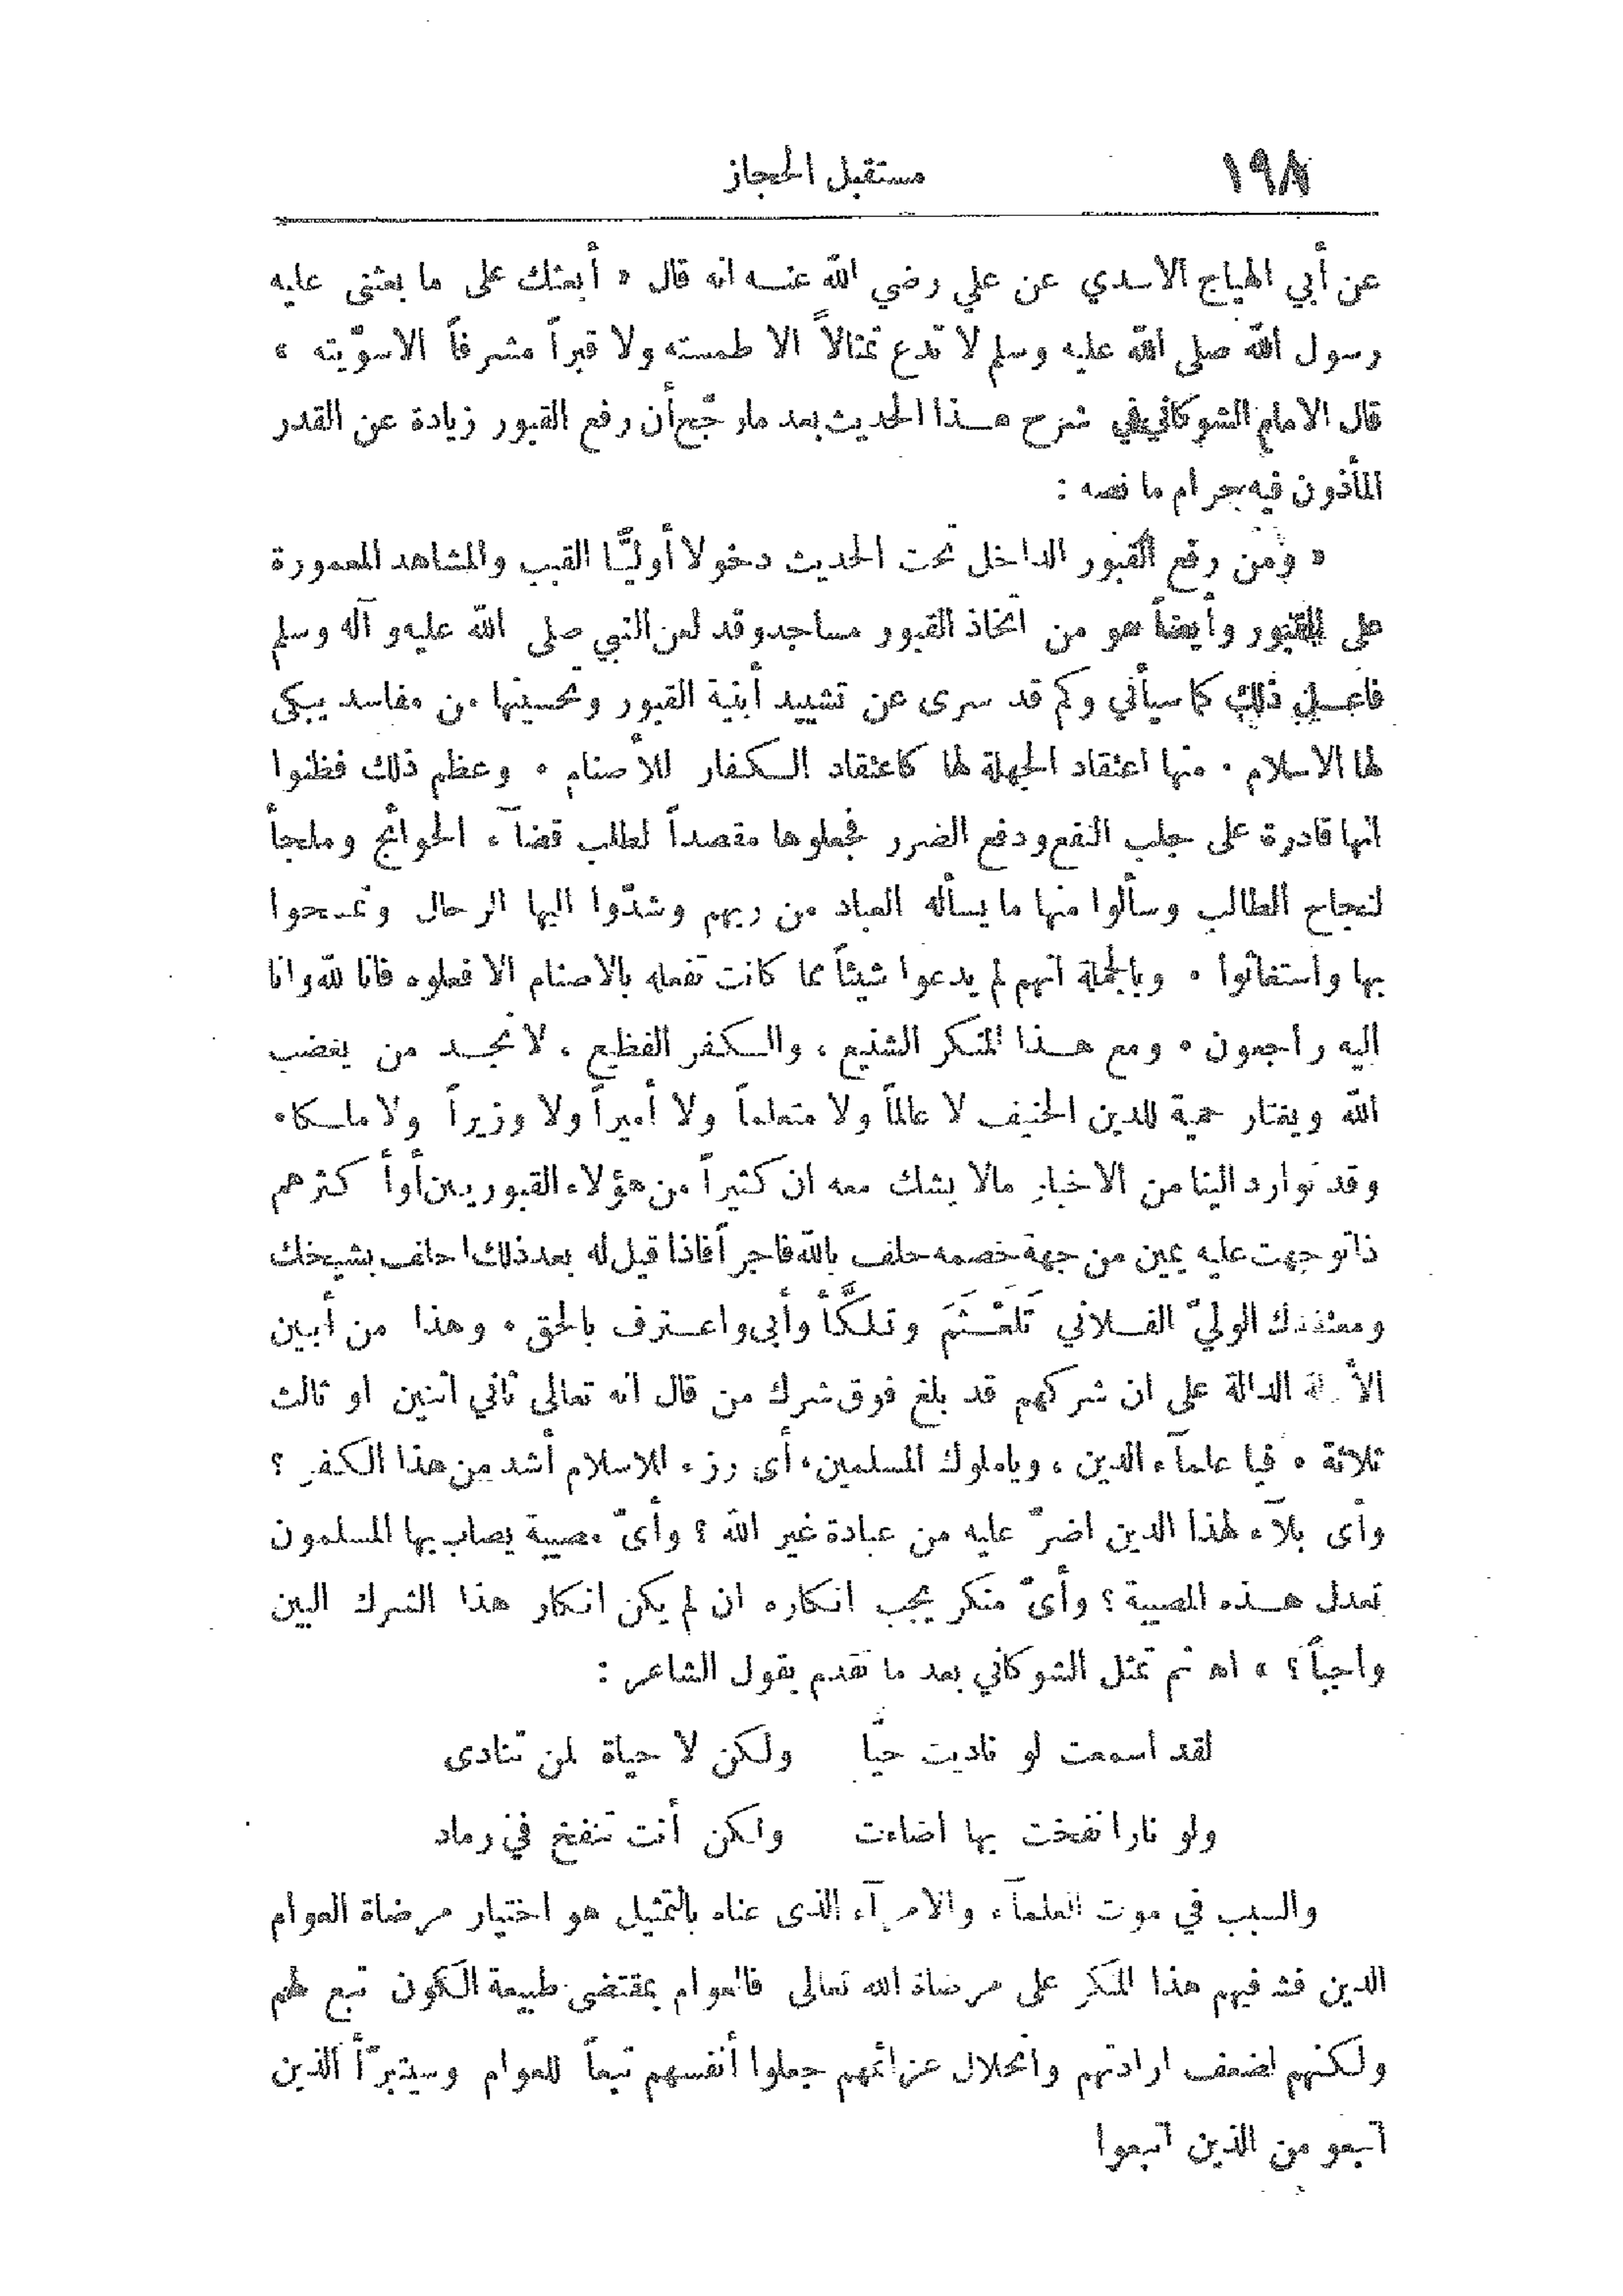 ١٩٨ مستقبل الحجاز
عن أبي الهياج الاسدي عن علي رضي الله عنه انه قال « أبعثك على ما بعثنى عليه
رسول الله صلى الله عليه وسلم لا تدع تمثالاً الا طمسته ولا قبراً مشرفاً الاسوّيته »
قال الامام الشوكاني في شرح هذا الحديث بعد مارجّح أن رفع القبور زيادة عن القدر
المأذون فيه حرام ما نصه :
« ومن رفع القبور الداخل تحت الحديث دخولا أوليًّا القبب والمشاهد المعمورة
على القبور وأيضاً هو من اتخاذ القبور مساجد وقد لعن النبي صلى الله عليه وآله وسلم
فاعل ذلك كما سيأتي وكم قد سرى عن تشييد أبنية القبور وتحسينها من مفاسد يبكى
لها الاسلام . منها اعتقاد الجهلة لها كاعتقاد الكفار للأصنام . وعظم ذلك فظنوا
انها قادرة على جلب النفع ودفع الضرر فجعلوها مقصداً لطلب قضآء الحوائج وملجأ
لنجاح المطالب وسألوا منها ما يسأله العباد من ربهم وشدّوا اليها الرحال وتمسحوا
بها واستغاثوا . وبالجملة انهم لم يدعوا شيئاً مما كانت تفعله بالاصنام الا فعلوه فانا لله وانا
اليه راجعون . ومع هذا المنكر الشنيع ، والكفر الفظيع ، لا نجد من يغضب
الله ويغتار حمية للدين الحنيف لا عالماً ولا متعلماً ولا أميراً ولا وزيراً ولا ملكا .
وقد توارد الينا من الاخبار مالا يشك معه ان كثيراً من هؤلاء القبوريين أوأكثرهم
ذاتوجهت عليه يمين من جهة خصمه حلف بالله فاجراً فاذا قيل له بعد ذلك احلف بشيخك
ومعتقدك الوليّ الفلاني تَلَعْثَمَ وتلكَّأ وأبى واعترف بالحق . وهذا من أبين
الأدلة الدالة على ان شركهم قد بلغ فوق شرك من قال انه تعالى ثاني اثنين او ثالث
ثلاثة . فيا علمآء الدين ، وياملوك المسلمين ، أي رزء للاسلام أشد من هذا الكفر ؟
وأى بلآء لهذا الدين اضرّ عليه من عبادة غير الله ؟ وأىّ مصيبة يصاب بها المسلمون
تعدل هذه المصيبة ؟ وأىّ منكر يجب انكاره ان لم يكن انكار هذا الشرك البين
واجباً ؟ » اه ثم تمثل الشوكاني بعد ما تقدم بقول الشاعر :
لقد اسمعت لو ناديت حيًّا ولكن لا حياة لمن تنادى
ولو نارا نفخت بها اضاءت ولكن أنت تنفخ في رماد
والسبب في موت العلمآء والامرآء الذى عناه بالتمثيل هو اختيار مرضاة العوام
الدين فشه فيهم هذا المنكر على مرضاة الله تعالى فالعوام بمقتضى طبيعة الكون تبع لهم
ولكنهم لضعف ارادتهم وانحلال عزائمهم جعلوا أنفسهم تبعاً للعوام وسيتبرّأ الذين
اتبعو من الذين اتبعوا